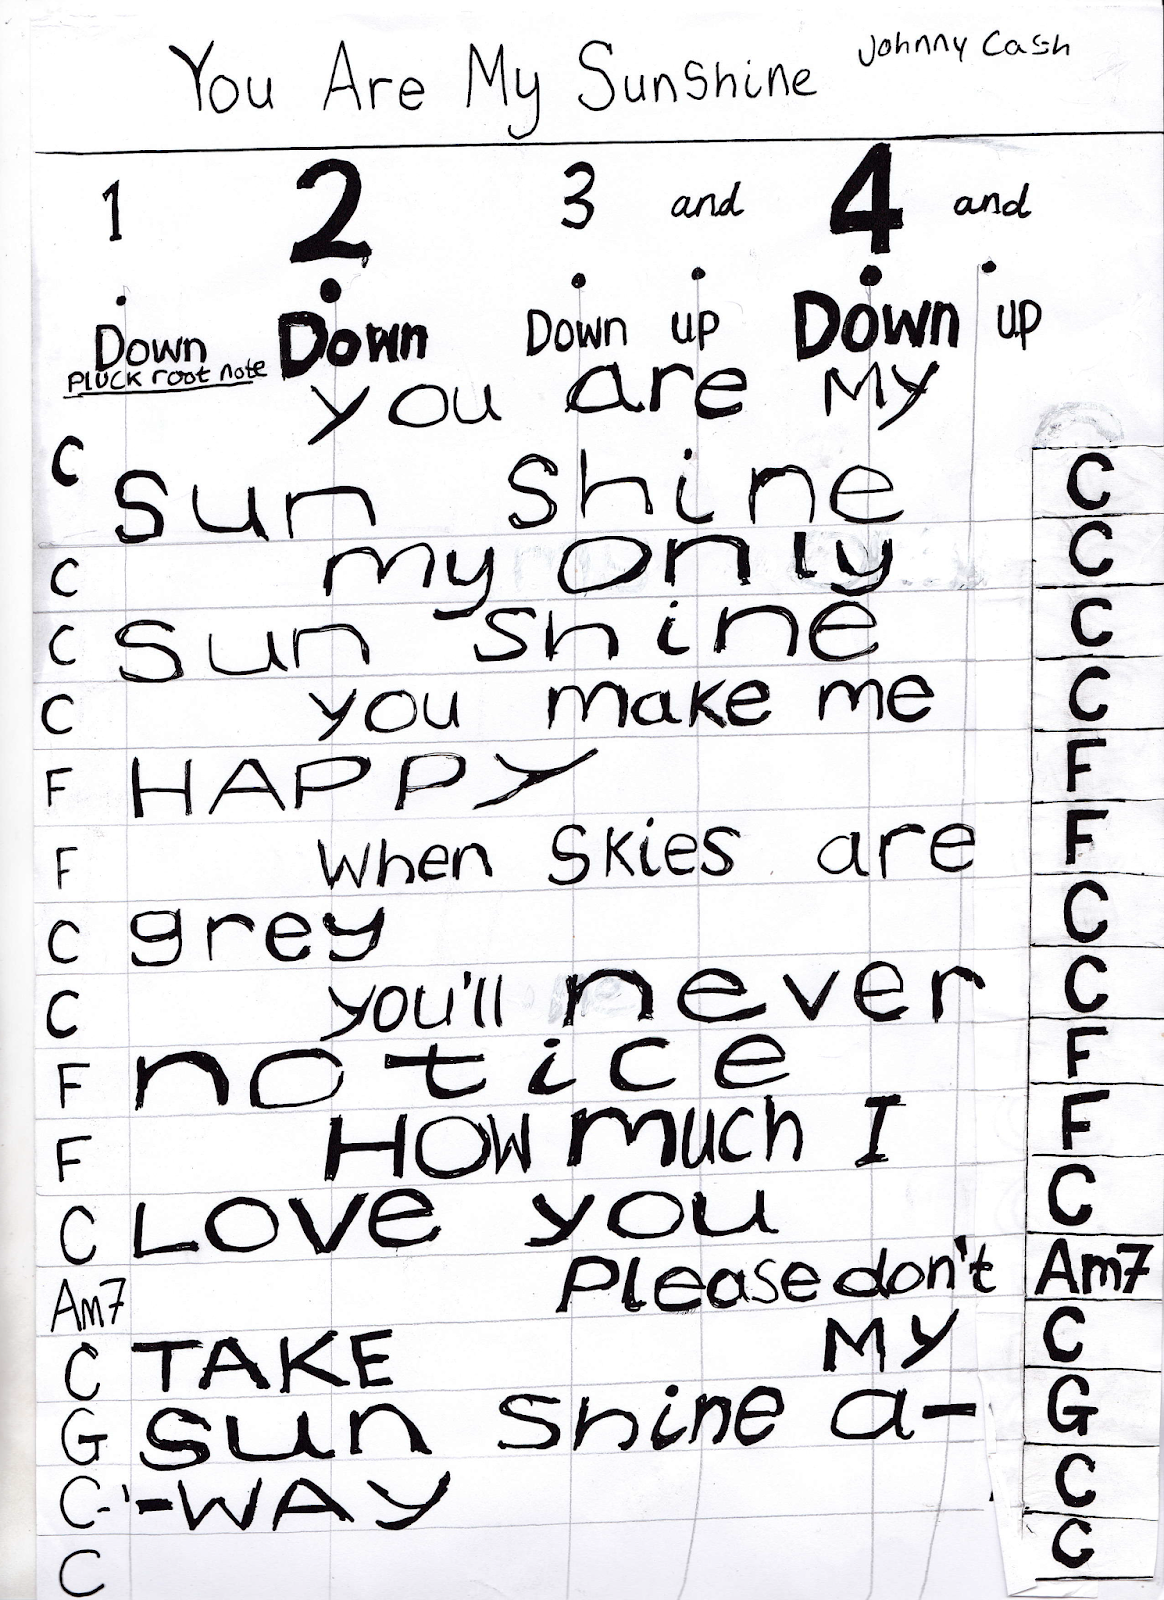 You Are My Sunshine Johnny Cash
1 2 3 and 4 and
Down Down Down up Down up
PLUCK root note
you are My
C Sun Shine C
C my only C
C Sun shine C
C you make me C
F HAPPY F
F When Skies are F
C grey C
C you'll never C
F notice F
F HOW much I F
C LOVE you C
Am7 Please don't Am7
C TAKE MY C
G sun shine a- G
C -WAY C
C C